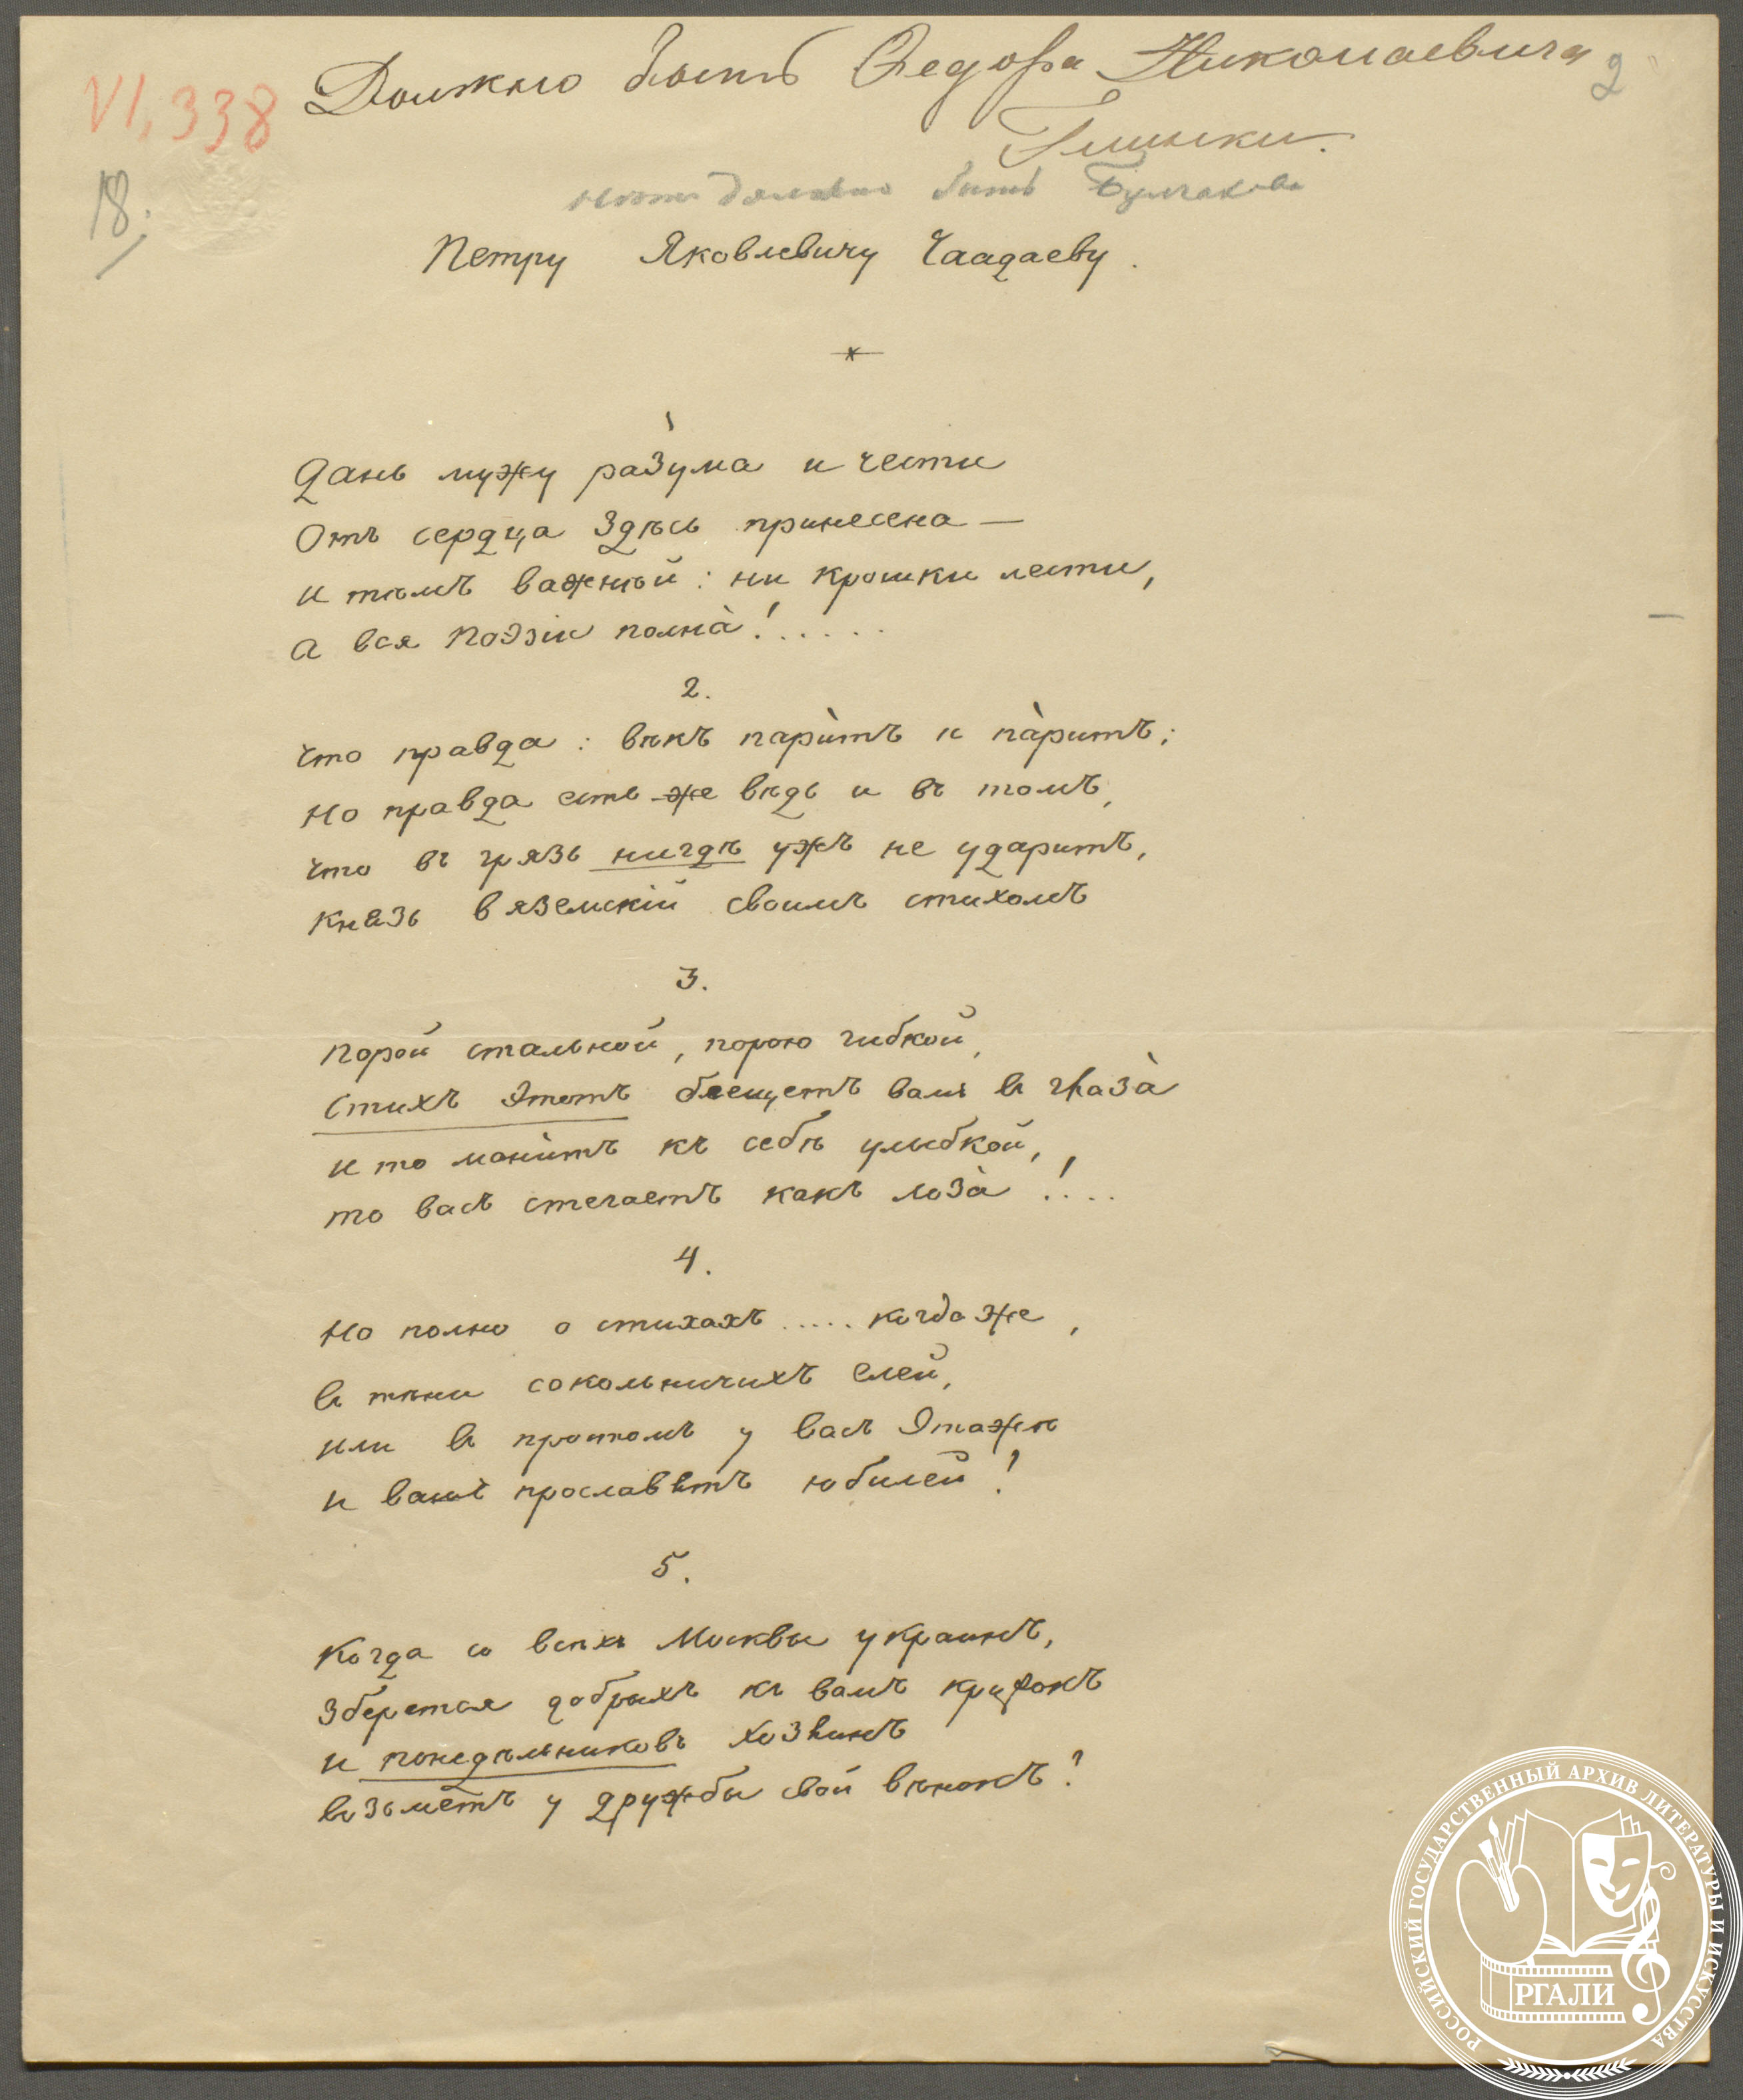 Должно быть Ѳедора Николаевича
2
VI, 338
Глинки.
18.
должно быть Булгакова
Петру Яковлевичу Чаадаеву.
Дань мужу ра̀зума и чести
Отъ сердца здѣсь принесена —
и тѣмъ важнѣй: ни крошки лести,
а вся Поэзіи полна̀!.....
2.
что правда: вѣкъ парѝтъ и па̀ритъ;
но правда есть же вѣдь и въ томъ,
что въ грязь нигдѣ ужъ не ударитъ,
Князь Вяземскій своимъ стихомъ
3.
Порой стальной, порою гибкой,
Стихъ этотъ блещетъ вамъ въ глаза̀
и то манѝтъ къ себѣ улыбкой,
то васъ стегаетъ какъ лоза̀!....
4.
Но полно о стихахъ ..... когда же,
въ тѣни сокольничихъ елей,
или въ простомъ у васъ этажѣ
и вашъ прославятъ юбилей!
5.
Когда со всѣхъ Москвы украинъ,
Зберется добрыхъ къ вамъ кружокъ
и понедѣльниковъ хозяинъ
возьметъ у дружбы свой вѣнокъ?
РОССИЙСКИЙ ГОСУДАРСТВЕННЫЙ АРХИВ ЛИТЕРАТУРЫ И ИСКУССТВА
РГАЛИ